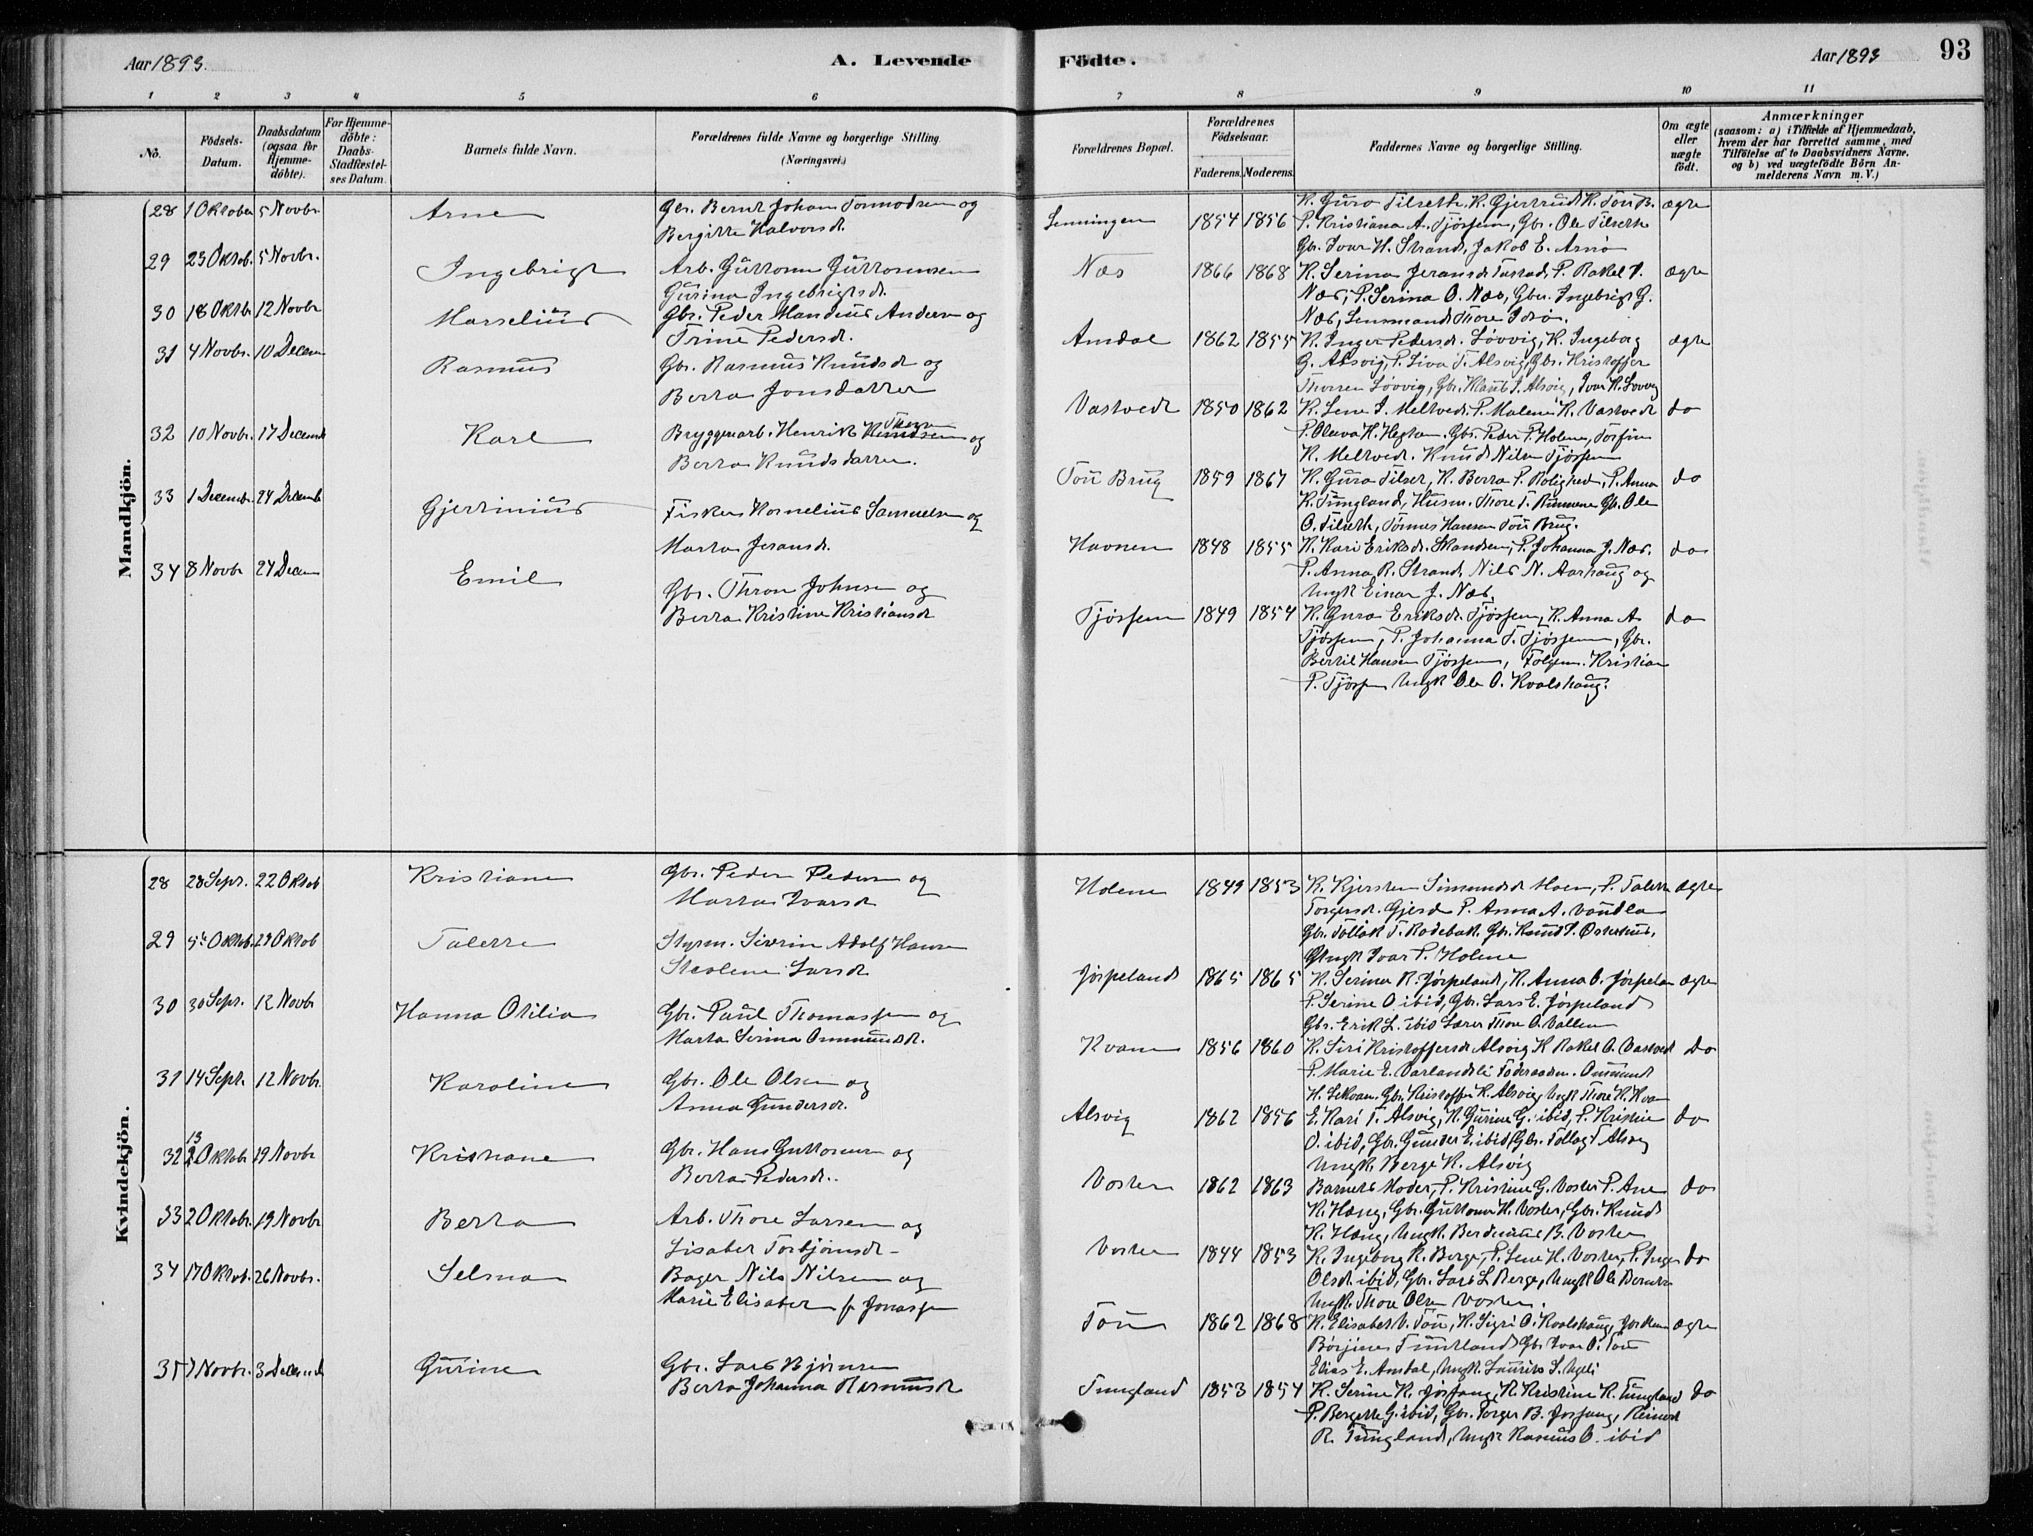 Aar 1893.
A. Levende
Födte.
Aar 1893
93
1 2 3 4 5 6 7 8 9 10 11
No.
Födsels-Datum.
Daabsdatum (ogsaa for Hjemme-döbte).
For Hjemme-döbte: Daabs-Stadfæstel-ses Datum.
Barnets fulde Navn.
Forældrenes fulde Navne og borgerlige Stilling.
(Næringsvei.)
Forældrenes Bopæl.
Forældrenes Födselsaar.
Faderens. Moderens.
Faddernes Navne og borgerlige Stilling.
Om ægte eller uægte födt.
Anmærkninger
(saasom: a) i Tilfælde af Hjemmedaab,
hvem der har forrettet samme, med
Tilföielse af to Daabsvidners Navne.
og b) ved uægtefödte Börn An-
melderens Navn m.V.)
Mandkjön.
28 1 Oktober 5 Novbr Arne Gbr. Bernt Johan Tormodsen og
Bergitte Halvorsd.
Senningen 1854 1856 K. Guro Tilseth, K. Gjertrud K. Tou B. ægte
P. Kristiana A. Tjössem, Gbr. Ole Tilseth
Gbr. Ivar H. Strand, Jakob E. Arnö
29 23 Oktob. 5 Novbr. Ingebrigt Arb. Guttorm Guttormsen
Gurina Ingebrigtsd.
Næs 1866 1868 K. Serina Jeransd. P. Rakel ægte
Næs, P. Serina O. Næs, Gbr. Ingebrigt G.
Næs, Lensmand Thore Idsö.
30 18 Oktbr 12 Novbr Marselius Gbr. Peder Mandius Andersen og
Trine Pedersd.
Amdal 1862 1855 K. Inger Pedersd. Lövvig, K. Ingeborg ægte
G. Alsvig, P. Siva T. Alsvig, Gbr. Kristoffer
Thorsen Lövvig, Gbr. I. Alsvig, Ivar K. Lövvig
31 4 Novbr. 10 Decem Rasmus Gbr. Rasmus Knudsd og
Berta Jonsdatter
Vastvedt 1850 1862 K. Lene J. Meltvedt, P. Malene K. Vastvedt do
P. Oleva H. Gbr. Peder P. Holene, Torfin
K. Meltvedt. Knud Nilsen Tjössem
32 10 Novbr. 17 Decemb Karl Bryggeriarb. Henrik Knudsen og
Berta Knudsdatter.
Tou Brug 1859 1867 K. Guro Tilset, K. Berta P. Rolighed, P. Anna do
K. Tungland, Husm. Thore T. Gbr. Ole
O. Tilseth, Tönnes Hansen Tou Brug.
33 1 Decembr. 24 Decemb Gjertinius Fisker Kornelius Samuelsen og
Marta Jeransd.
Havnen 1848 1855 K. Kari Eriksd. P. Johanna J. Næs. do
P. Anna R. Strand, Nils N. Aarhaug og
Ungk Einar J. Næs.
34 8 Novbr 24 Decem Emil Gbr. Thron Johnsen og
Berta Kristine Kristiansd
Tjössem 1849 1854 K. Guro Eriksd. Tjössem, K. Anna A. do
Tjössem, P. Johanna T. Tjössem, Gbr.
Bertil Hansen Tjössem, Kristian
P. Tjössem Ungk Ole O. Kvalshaug.
Kvindekjön.
28 28 Sept. 22 Oktob Kristiane Gbr. Peder Pedersen og
Marta Ivarsd
Holene 1849 1853 K. Kjersten Simundsd Moen, P. Talette ægte
Torgersd. Gjesd P. Anna A.
Gbr. Tollak T. Gbr. Knud P.
Ungk Ivar P. Holene
29 5te Oktob. 29 Oktob Talette Styrm. Siverin Adolf Hansen
Larsd
Jörpeland 1865 1865 K. Serina K. Jörpeland, K. Anna O. Jörpelan ægte
P. Serine O ibid, Gbr. Lars E. Jörpeland
Gbr. Erik L. ibid Lærer Thore O. Vallen
30 30 Sept. 12 Novbr Hanna Otilia Gbr. Paul Thomassen og
Marta Serina Ommundsd.
Kvam 1856 1860 K. Siri Kristoffersd Alsvig K Rakel O. Vastvedt do
P. Marie E. Varlandsli Ommund
H. Lekvam, Gbr. Kristoffer K. Alsvig, Ungk Thore H. Kvam
31 14 Sept. 12 Novbr. Karoline Gbr. Ole Olsen og
Anna Gundersd.
Alsvig 1862 1856 E. Kari T. Alsvig, K. Gurine G. ibid, P. Kristine do
O. ibid, Gbr. Gunder E ibid, Gbr. Tollag T Alsvig
Ungk. Berge K. Alsvig
32 13 Oktobr 19 Novbr Kristiane Gbr. Hans Guttormsen og
Berta Pedersd.
Voster 1862 1863 Barnets Moder, P. Kristine G. Voster P. Ane do
K. Gbr. Guttorm H. Voster, Gbr. Knud
K. Ungk. B. Voster
33 2 Oktobr. 19 Novbr Berta Arb. Thore Larsen og
Lisabet Torbjörnsd
Voster 1844 1853 K. Ingeborg K. Berge, P. Lene H. Voster, P. Inger do
Olsd. ibid, Gbr. Lars L Berge, Ungk Ole
Ungk. Thore Olsen Voster.
34 17 Oktob. 26 Novbr. Selma Bager Nils Nilsen og
Marie Elisabet f. Jonassen
Tou 1862 1868 K. Elisabet V. Tou, K. Sigri O. Kvalshaug, ægte
Gbr. Ivar O. Tou
Elias E. Amdal, Ungk Laurits S.
35 7 Novbr. 3 Decemb Gurine Gbr. Lars Björnsen
Berta Johanna Rasmusd
Tungland 1853 1854 K. Serine K. Jössang, K. Kristine K. Tungland do
P. Bergette G. ibid, Gbr. Torger B. Jössang, Reinert
R. Tungland, Ungk Rasmus O. ibid